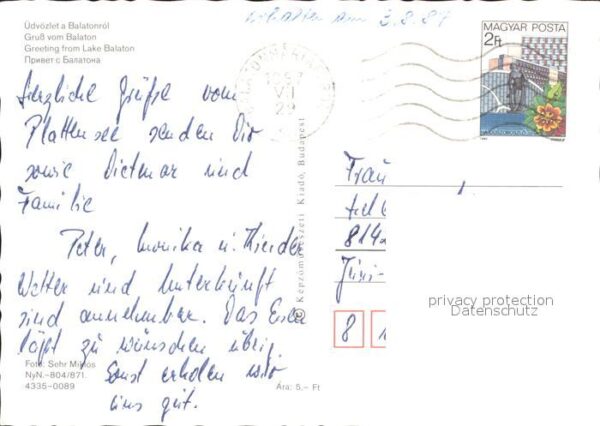 Üdvözlet a Balatonról
Gruß vom Balaton
Greeting from Lake Balaton
Привет с Балатона
erhalten am 3.8.87
MAGYAR POSTA
2Ft
1987
VII
29
Herzliche Grüße vom
Plattensee senden Dir
sowie Dietmar und
Familie
Peter, Monika u. Kinder
Wetter und Unterkünft
sind annehmbar. Das Essen
läßt zu wünschen übrig.
Sonst erholen wir
uns gut.
Foto: Sehr Miklós
NyN.-804/871.
4335-0089
Ára: 5,- Ft
© Képzőművészeti Kiadó, Budapest
Frau
814
8
privacy protection
Datenschutz